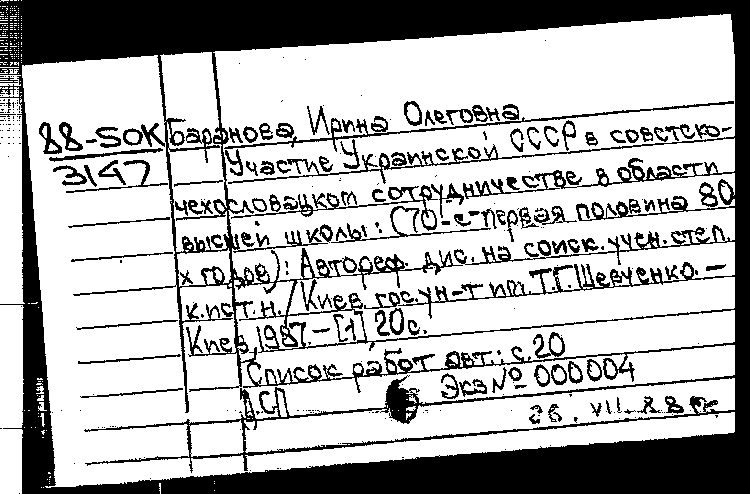 88-SOK Баранова, Ирина Олеговна.
3147 Участие Украинской ССР в советско-
чехословацком сотрудничестве в области
высшей школы: (70-е-первая половина 80
х годов): Автореф. дис. на соиск. учен. степ.
к.ист.н. / Киев. гос. ун-т им. Т.Г. Шевченко. –
Киев, 1987. – [1] 20 с.
Список работ авт.: с. 20
ДСП Экз № 000004
26. VII. 88